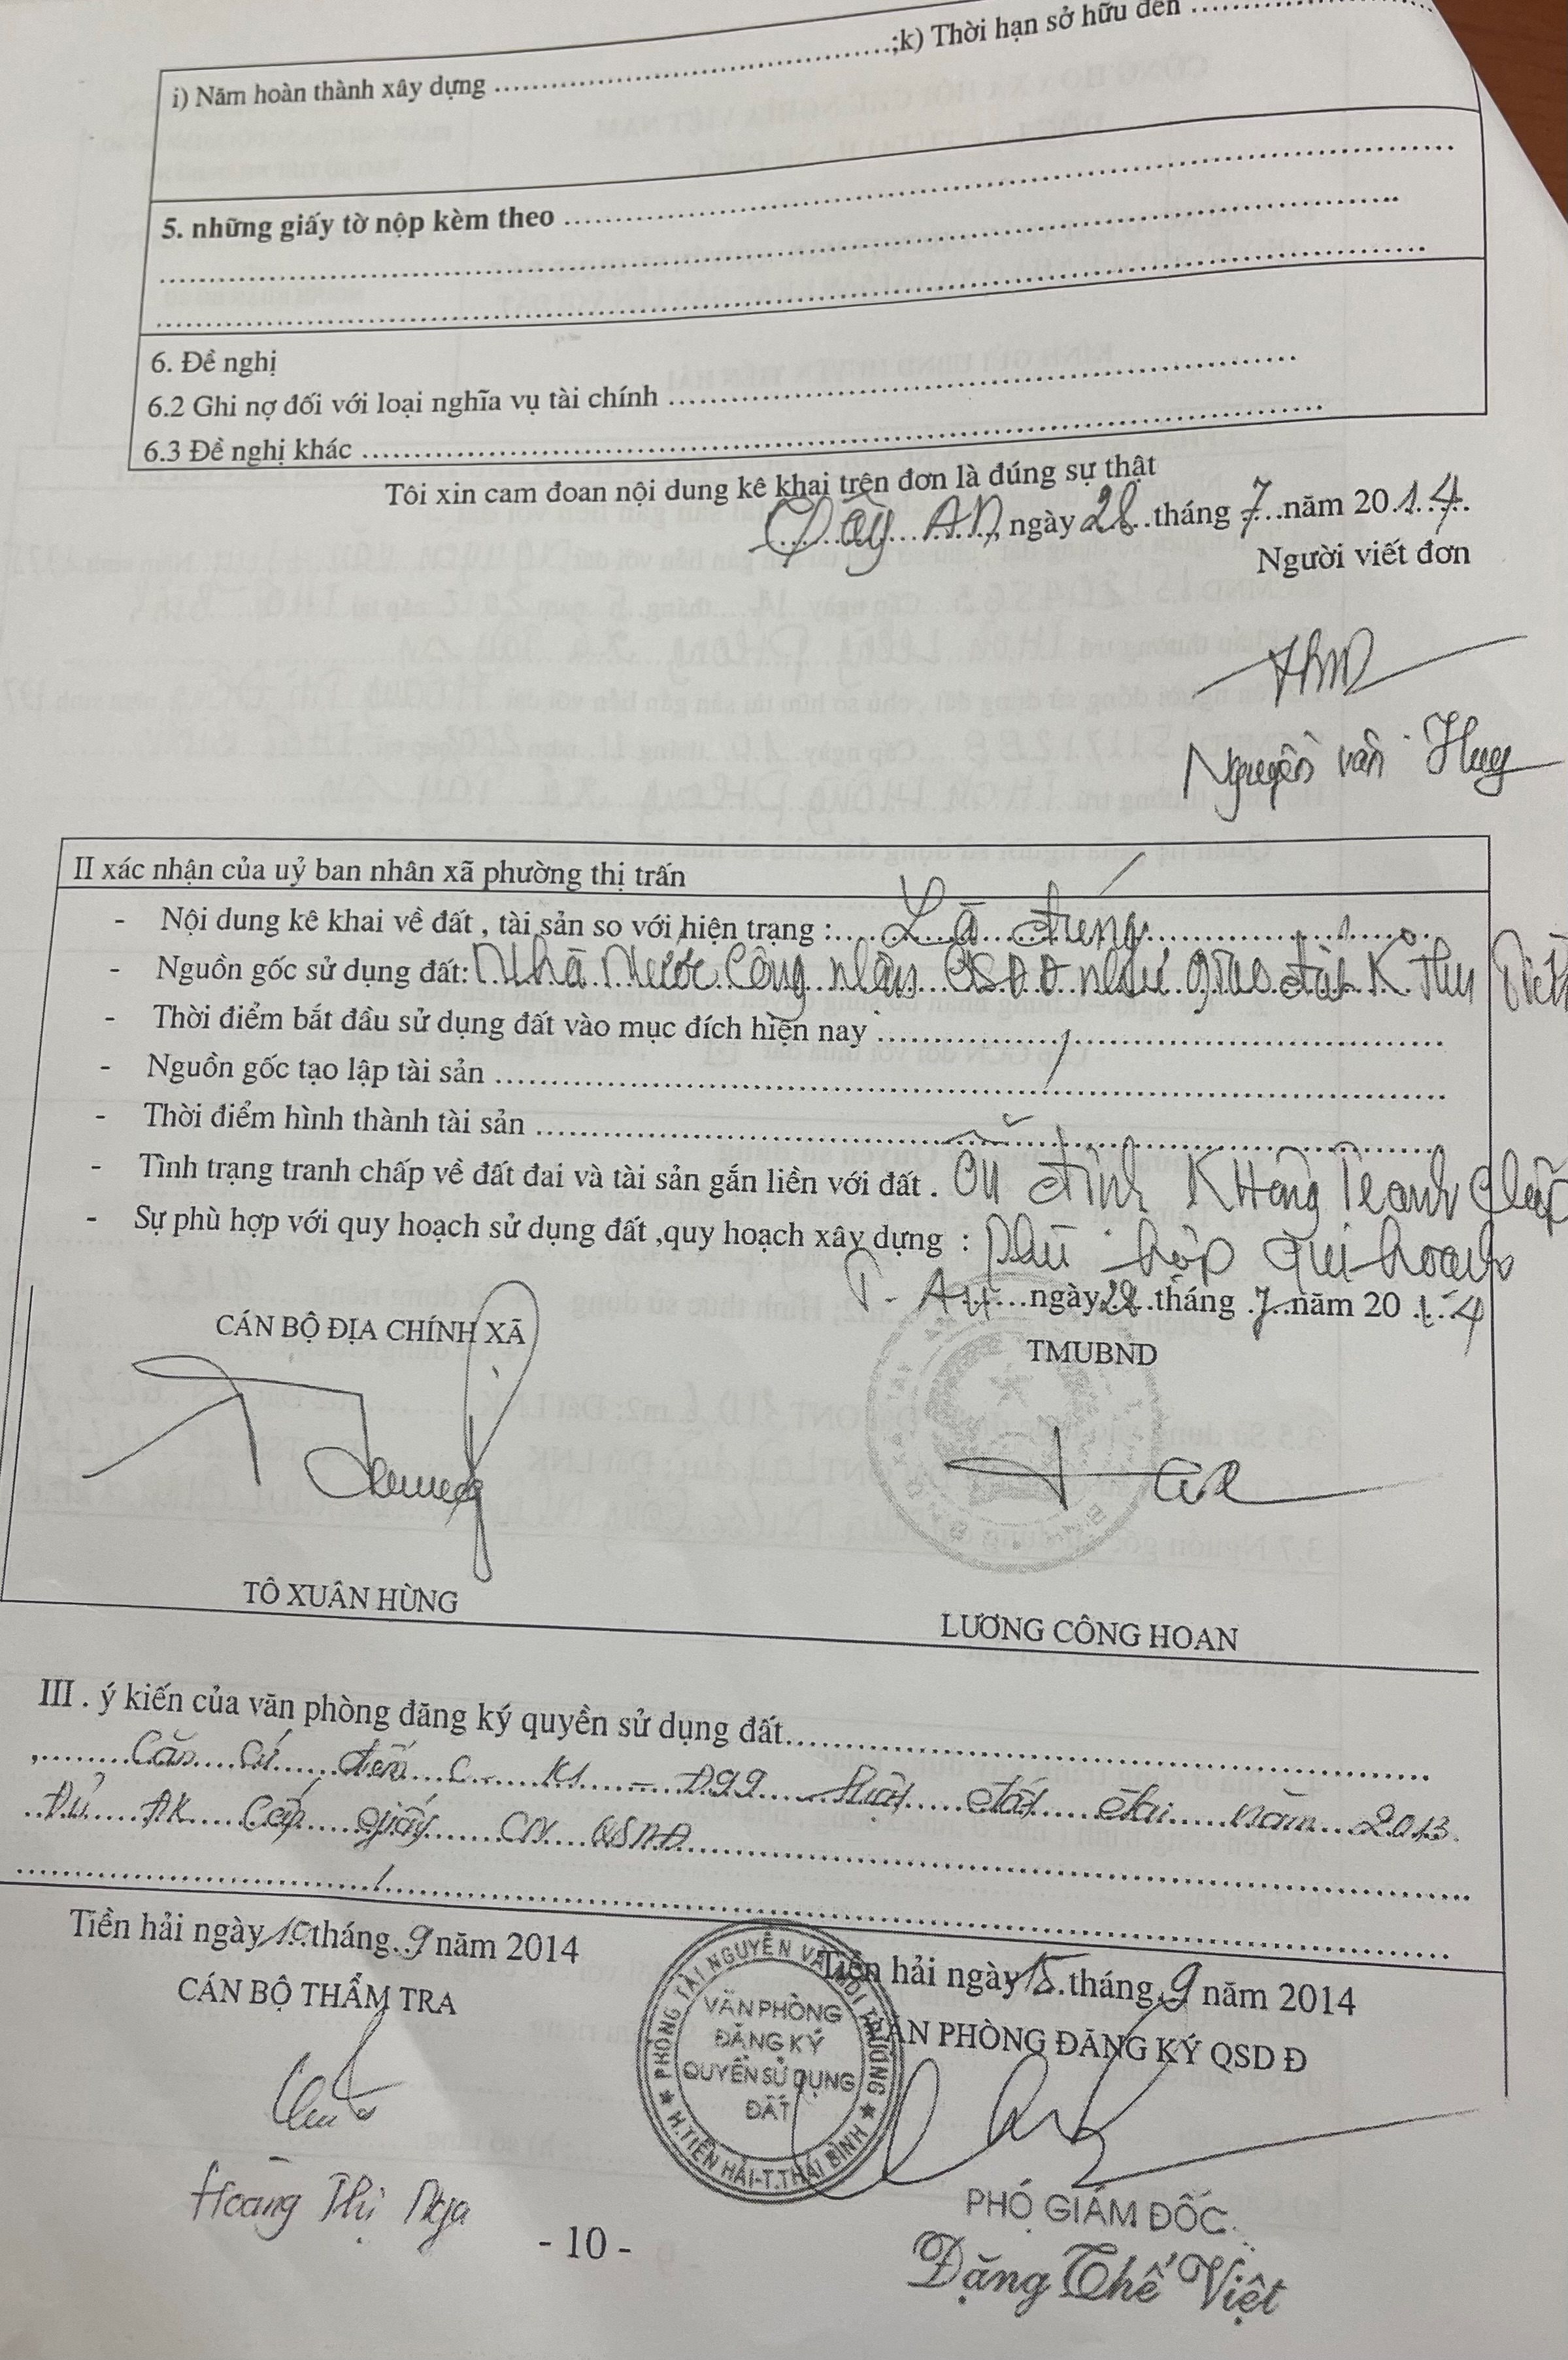 i) Năm hoàn thành xây dựng ....................;k) Thời hạn sở hữu đến ....................
5. những giấy tờ nộp kèm theo ....................
6. Đề nghị
6.2 Ghi nợ đối với loại nghĩa vụ tài chính ....................
6.3 Đề nghị khác ....................
Tôi xin cam đoan nội dung kê khai trên đơn là đúng sự thật
Tây An, ngày 28 tháng 7 năm 2014
Người viết đơn
Nguyễn văn Huy
II xác nhận của uỷ ban nhân xã phường thị trấn
- Nội dung kê khai về đất , tài sản so với hiện trạng : Là đúng
- Nguồn gốc sử dụng đất: Nhà nước công nhận QSDĐ như giao đất K thu tiền
- Thời điểm bắt đầu sử dụng đất vào mục đích hiện nay ....................
- Nguồn gốc tạo lập tài sản ....................
- Thời điểm hình thành tài sản ....................
- Tình trạng tranh chấp về đất đai và tài sản gắn liền với đất . ổn định Không Tranh chấp
- Sự phù hợp với quy hoạch sử dụng đất ,quy hoạch xây dựng : Phù hợp qui hoạch
T. An ngày 28 tháng 7 năm 2014
CÁN BỘ ĐỊA CHÍNH XÃ
TMUBND
TÔ XUÂN HÙNG
LƯƠNG CÔNG HOAN
III . ý kiến của văn phòng đăng ký quyền sử dụng đất....................
Căn cứ điểm C - K1 - Đ99 - luật đất đai năm 2013.
Đủ ĐK cấp giấy CN QSDĐ
Tiền hải ngày 10 tháng 9 năm 2014
Tiền hải ngày 15 tháng 9 năm 2014
CÁN BỘ THẨM TRA
VĂN PHÒNG ĐĂNG KÝ QSD Đ
PHÒNG TÀI NGUYÊN VÀ MÔI TRƯỜNG
VĂN PHÒNG
ĐĂNG KÝ
QUYỀN SỬ DỤNG
ĐẤT
H.TIỀN HẢI-T.THÁI BÌNH
Hoàng Thị Nga
PHÓ GIÁM ĐỐC
Đặng Thế Việt
- 10 -